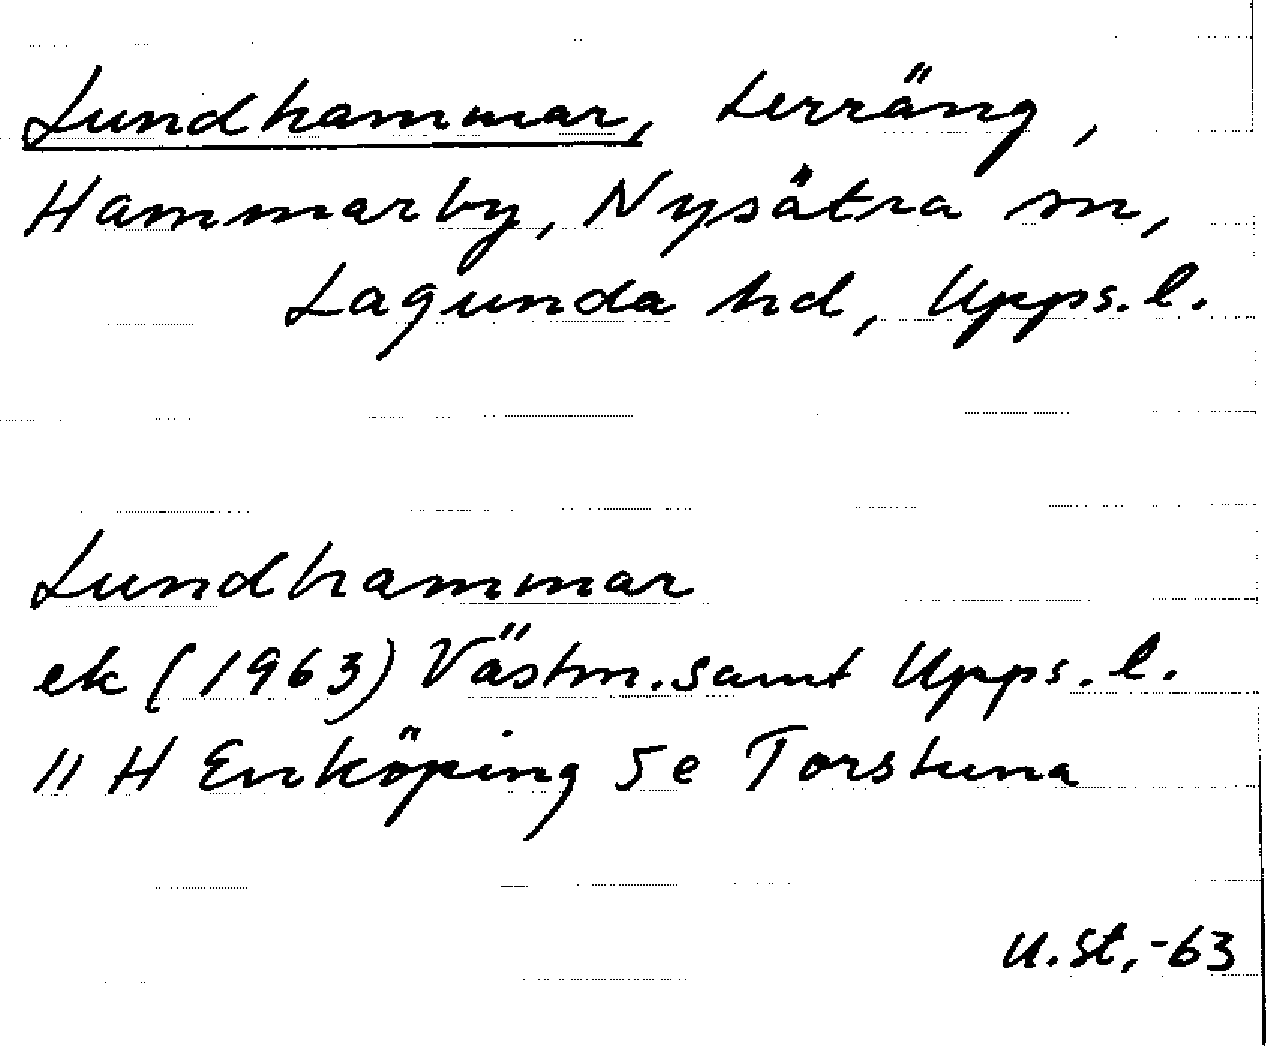 Lundhammar, terräng,
Hammarby, Nysätra sn,
Lagunda hd, Upps.l.
Lundhammar
ek (1963) Västm. samt Upps.l.
11 H Enköping 5e Torstuna
U.St,-63